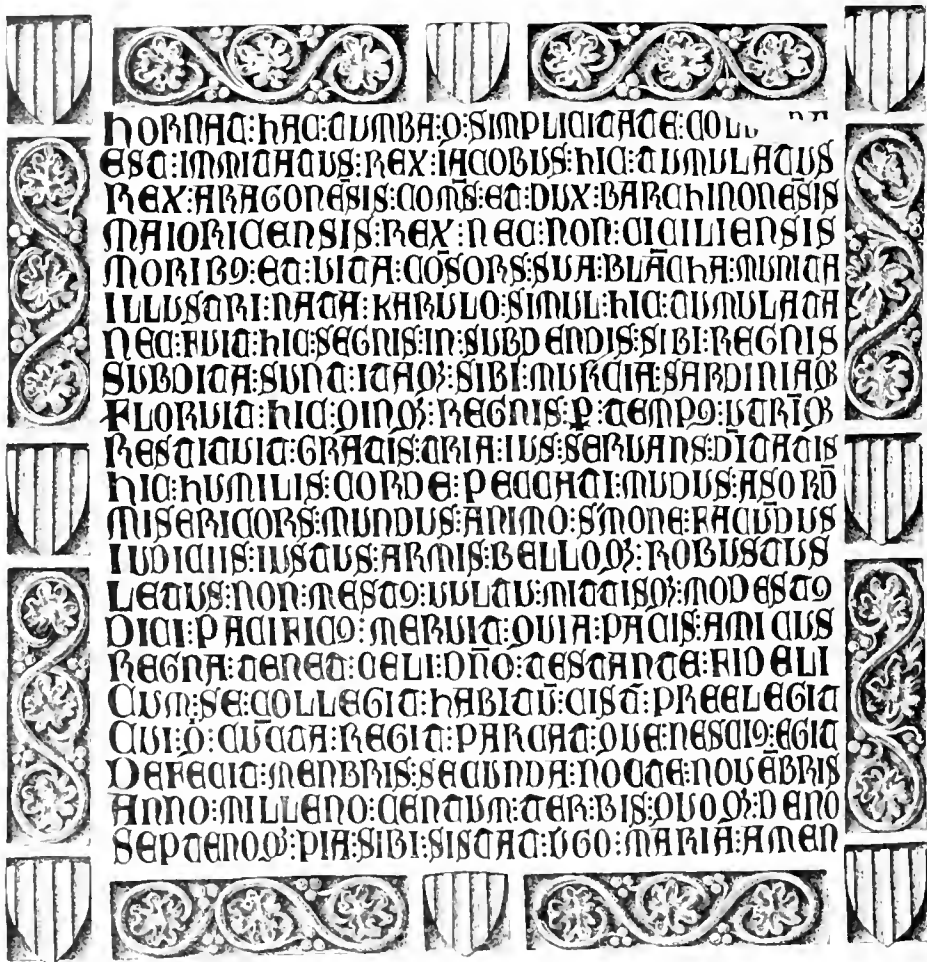 HORNAT:HAC:TUMBA:Q:SIMPLICITATE:
EST:IMMITATUS:REX:IACOBUS:HIC:TUMULATUS
REX:ARAGONĒSIS:COMS̄:ET:DUX:BARCHINONĒSIS
MAIORICENSIS:REX:NEC:NON:CICILIENSIS
MORIBꝰ:ET:VITA:CŌSORS:SUA:BLĀCHA:MUNITA
ILLUSTRI:NATA:KARULO:SIMUL:HIC:TUMULATA
NEC:FUIT:HIC:SEGNIS:IN:SUBDENDIS:SIBI:REGNIS
SUBDITA:SUNT:ITAQꝫ:SIBI:MURCIA:SARDINIAQꝫ
FLORUIT:HIC:QINQꝫ:REGNIS:Ꝑ:TEMPꝰ:UTRĪQꝫ
RESTITUIT:GRATIS:TRIA:IUS:SERVANS:DĪTATIS
HIC:HUMILIS:CORDE:PECCATI:MŪDUS:ASORD̄
MISERICORS:MUNDUS:ANIMO:S'MONE:FACŪDUS
IUDICIIS:IUSTUS:ARMIS:BELLOQꝫ:ROBUSTUS
LETUS:NON:MESTꝰ:VULTU:MITTISQꝫ:MODESTꝰ
DICI:PACIFICꝰ:MERUIT:QUIA:PACIS:AMICUS
REGNA:TENET:CELI:DN̄O:TESTANTE:FIDELI
CUM:SE:COLLEGIT:HABITŪ:CIST̄:PREELEGIT
CUI:Q̇:CŪCTA:REGIT:PARCAT:QUE:NESCIꝰ:EGIT
DEFECIT:MENBRIS:SECUNDA:NOCTE:NOVĒBRIS
ANNO:MILLENO:CENTUM:TER:BIS:QUOQꝫ:DENO
SEPTENOQꝫ:PIA:SIBI:SISTAT:VGO:MARIA:AMEN